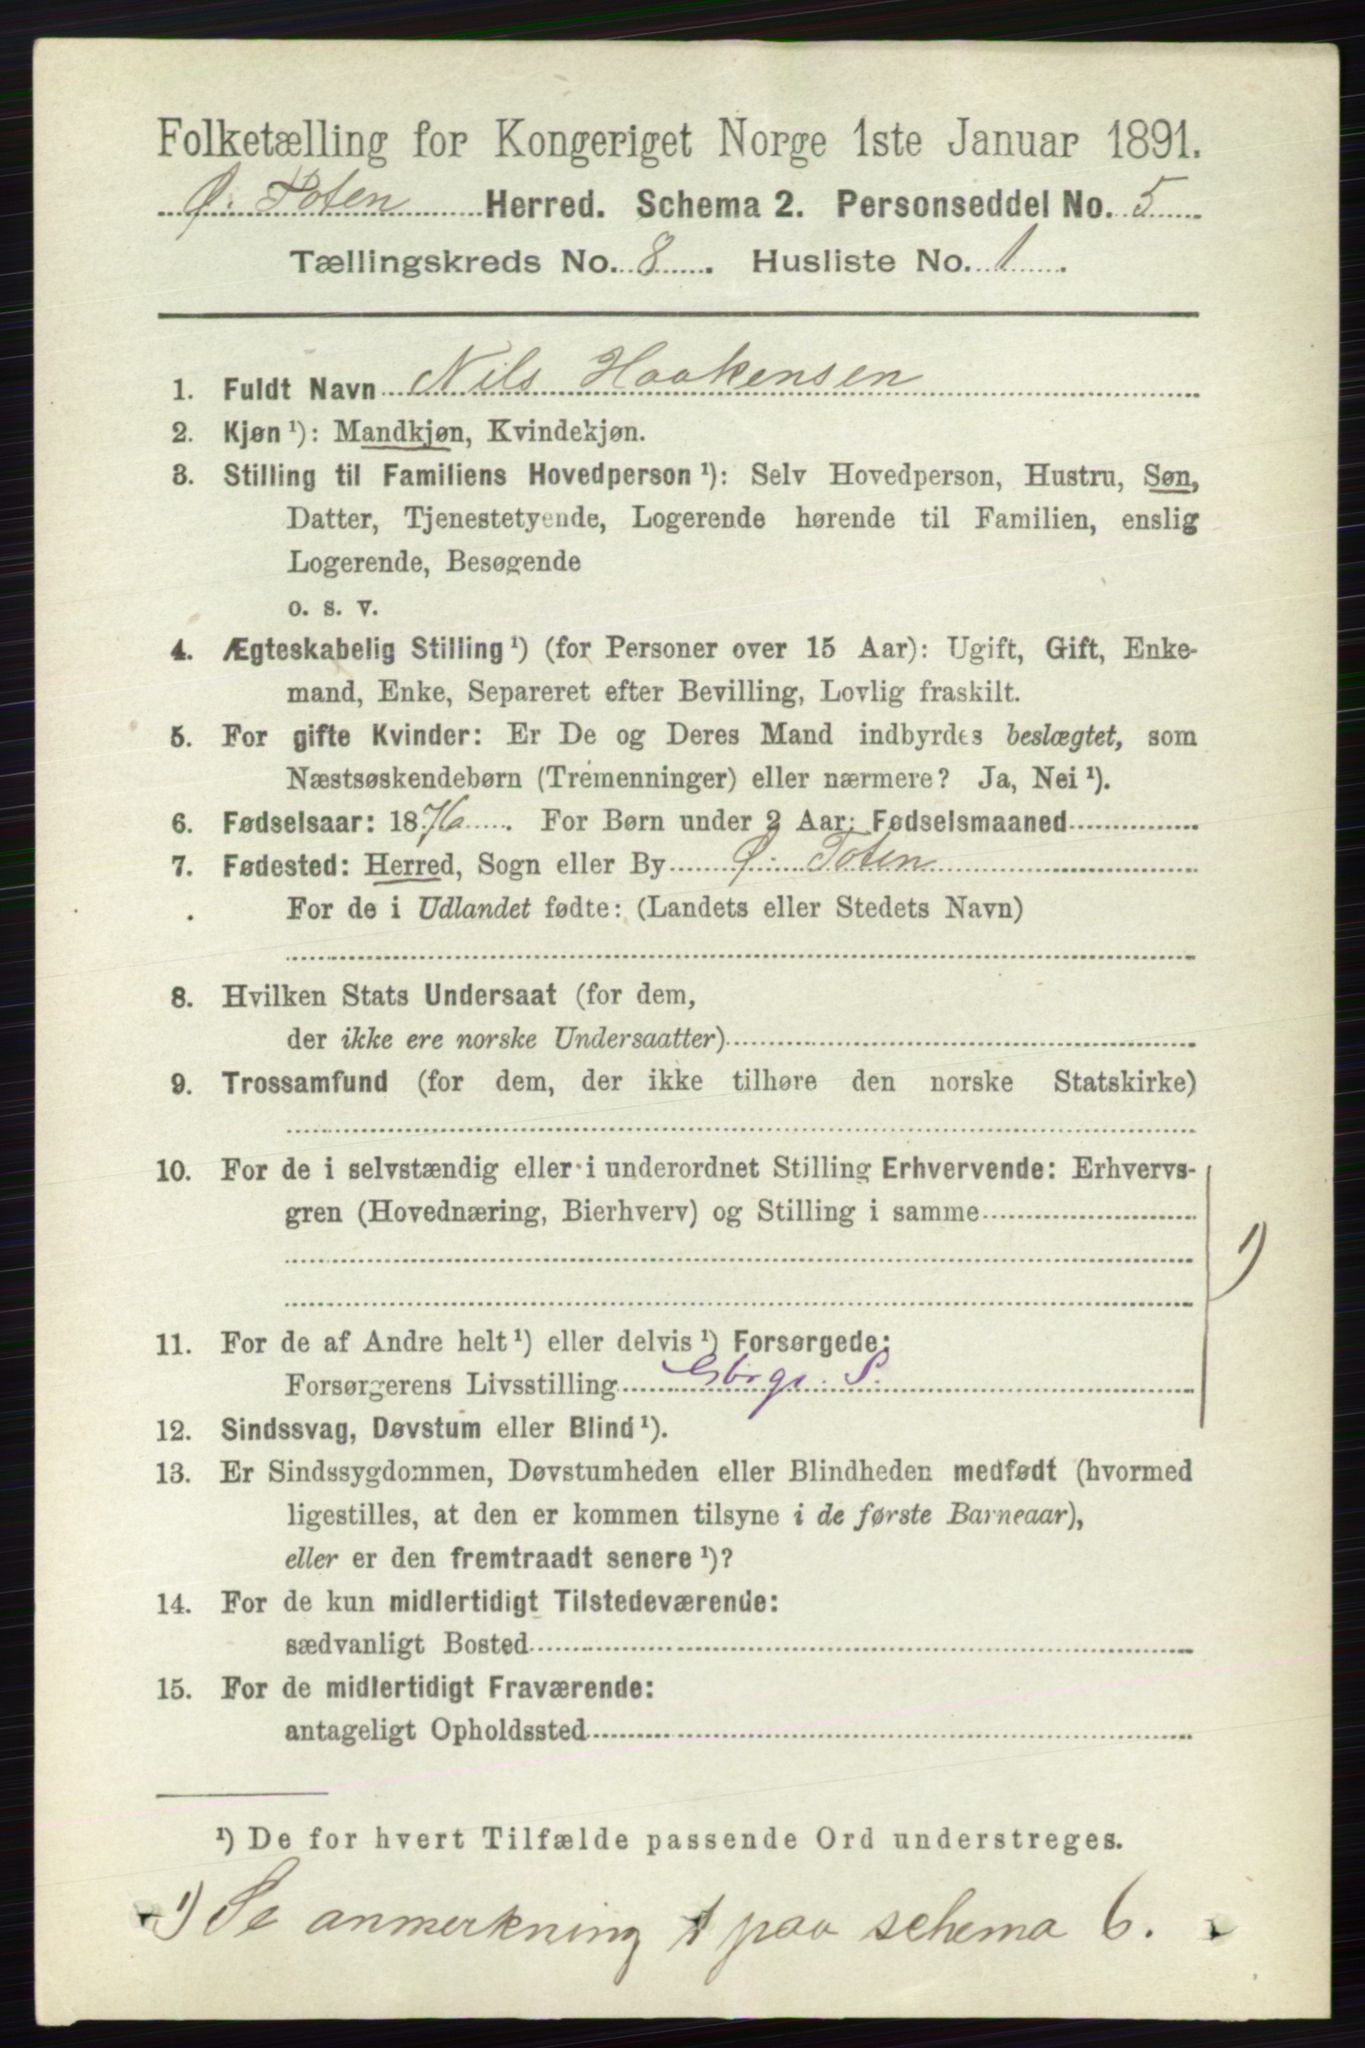 Folketælling for Kongeriget Norge 1ste Januar 1891.
Ø. Toten Herred. Schema 2. Personseddel No. 5
Tællingskreds No. 8. Husliste No. 1.
1. Fuldt Navn Nils Haakensen
2. Kjøn ¹): Mandkjøn, Kvindekjøn.
3. Stilling til Familiens Hovedperson ¹): Selv Hovedperson, Hustru, Søn,
Datter, Tjenestetyende, Logerende hørende til Familien, enslig
Logerende, Besøgende
o. s. v.
4. Ægteskabelig Stilling ¹) (for Personer over 15 Aar): Ugift, Gift, Enke-
mand, Enke, Separeret efter Bevilling, Lovlig fraskilt.
5. For gifte Kvinder: Er De og Deres Mand indbyrdes beslægtet, som
Næstsøskendebørn (Tremenninger) eller nærmere? Ja, Nei ¹).
6. Fødselsaar: 1876. For Børn under 2 Aar: Fødselsmaaned
7. Fødested: Herred, Sogn eller By Ø. Toten
For de i Udlandet fødte: (Landets eller Stedets Navn)
8. Hvilken Stats Undersaat (for dem,
der ikke ere norske Undersaatter)
9. Trossamfund (for dem, der ikke tilhøre den norske Statskirke)
10. For de i selvstændig eller i underordnet Stilling Erhvervende: Erhvervs-
gren (Hovednæring, Bierhverv) og Stilling i samme
1)
11. For de af Andre helt ¹) eller delvis ¹) Forsørgede:
Forsørgerens Livsstilling S.
12. Sindssvag, Døvstum eller Blind ¹).
13. Er Sindssygdommen, Døvstumheden eller Blindheden medfødt (hvormed
ligestilles, at den er kommen tilsyne i de første Barneaar),
eller er den fremtraadt senere ¹)?
14. For de kun midlertidigt Tilstedeværende:
sædvanligt Bosted
15. For de midlertidigt Fraværende:
antageligt Opholdssted
¹) De for hvert Tilfælde passende Ord understreges.
1) Se anmerkning 1 paa schema 6.